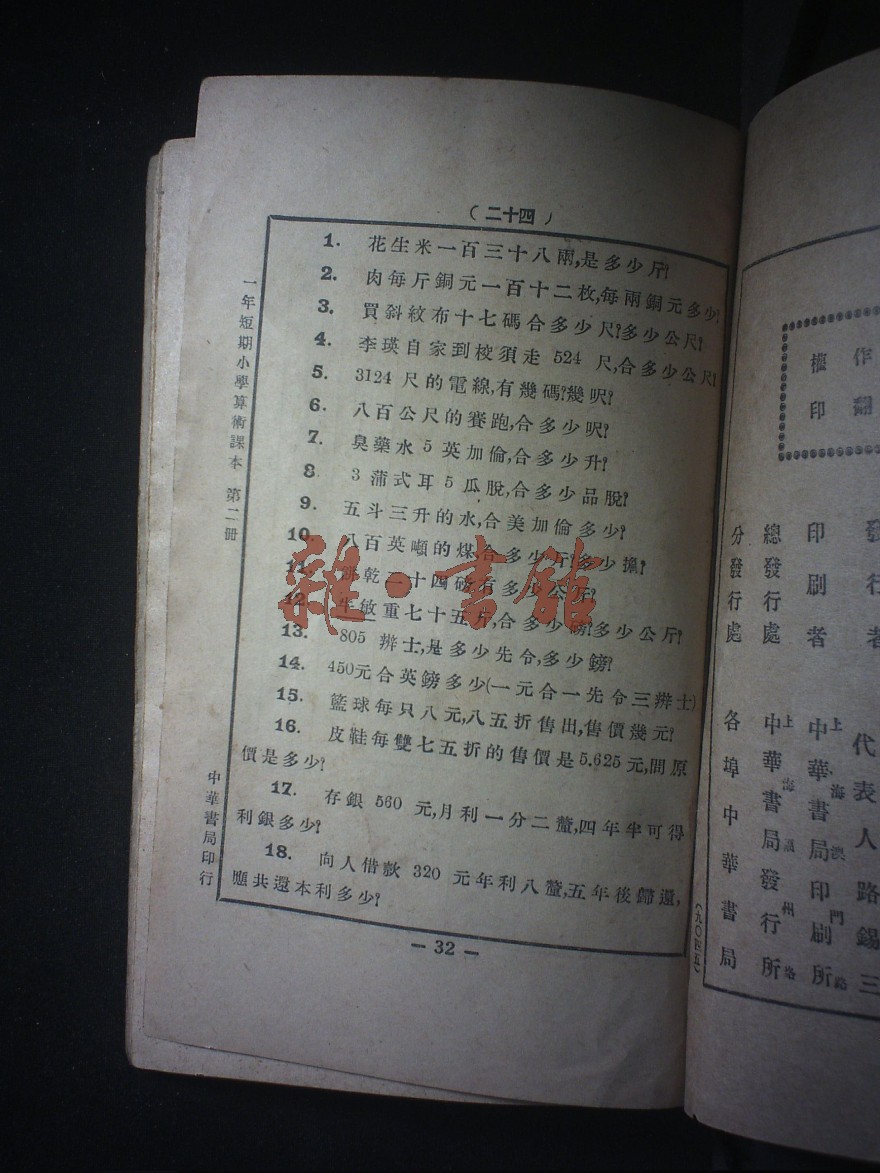 (二十四)
1. 花生米一百三十八兩,是多少斤?
2. 肉每斤銅元一百十二枚,每兩銅元多少?
3. 買斜紋布十七碼合多少尺?多少公尺?
4. 李瑛自家到校須走 524 尺,合多少公尺?
5. 3124 尺的電線,有幾碼?幾呎?
6. 八百公尺的賽跑,合多少呎?
7. 臭藥水 5 英加倫,合多少升?
8. 3 蒲式耳 5 瓜脫,合多少品脫?
9. 五斗三升的水,合美加倫多少?
10. 八百英噸的煤,合多少斤?多少擔?
11. 餅乾二十四磅有多少公斤?
12. 重七十五斤,合多少磅?多少公斤?
13. 805 辨士,是多少先令,多少鎊?
14. 450元合英鎊多少(一元合一先令三辨士)
15. 籃球每只八元,八五折售出,售價幾元?
16. 皮鞋每雙七五折的售價是5.625元,問原
價是多少?
17. 存銀 560 元,月利一分二釐,四年半可得
利銀多少?
18. 向人借款 320 元年利八釐,五年後歸還,
應共還本利多少?
— 32 —
一年短期小學算術課本 第二冊
中華書局印行
雜·書館
作
權
翻
印
發行者
代表人路錫三
印刷者
上海澳門路
中華書局印刷所
總發行處
上海福州路
中華書局發行所
分發行處
各埠中華書局
(九〇四五)